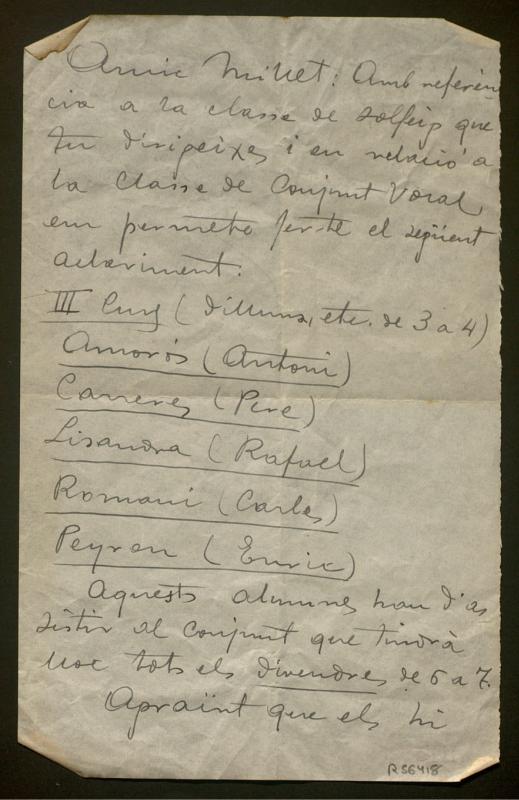 Amic Millet: Amb referèn
cia a la classe de solfeig que
tu dirigeixes i en relació a
la classe de Conjunt Vocal,
em permeto fer-te el següent
aclariment:
III Curs (dilluns, etc. de 3 a 4)
Amorós (Antoni)
Carreres (Pere)
Lisandra (Rafael)
Romaní (Carles)
Peyron (Enric)
Aquests alumnes han d'as
sistir al conjunt que tindrà
lloc tots els divendres de 6 a 7.
Apraïnt que els hi
R 56418